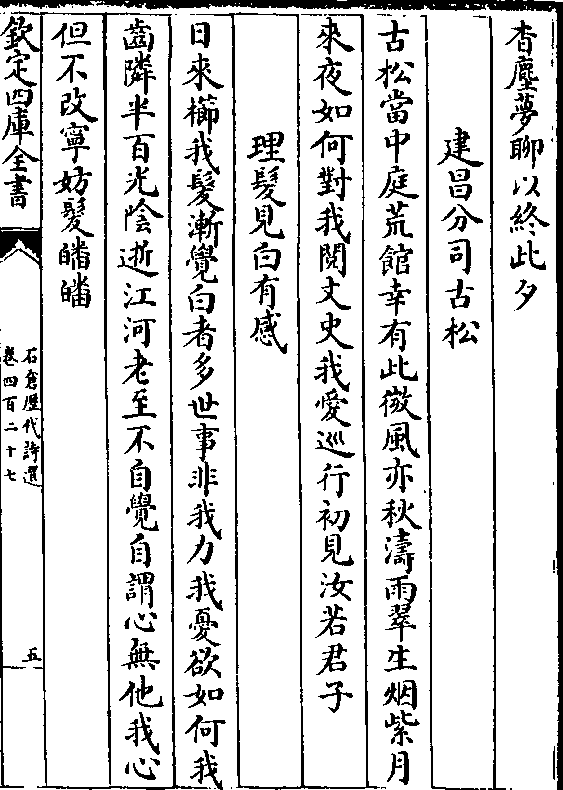 杳塵夢聊以終此夕
建昌分司古松
古松當中庭荒館幸有此微風亦秋濤雨翠生烟紫月
來夜如何對我閱文史我愛巡行初見汝若君子
理髮見白有感
日來櫛我髮漸覺白者多世事非我力我憂欲如何我
齒隣半百光陰逝江河老至不自覺自謂心無他我心
但不改寧妨髮皤皤
欽定四庫全書
石倉歷代詩選
卷四百二十七
五